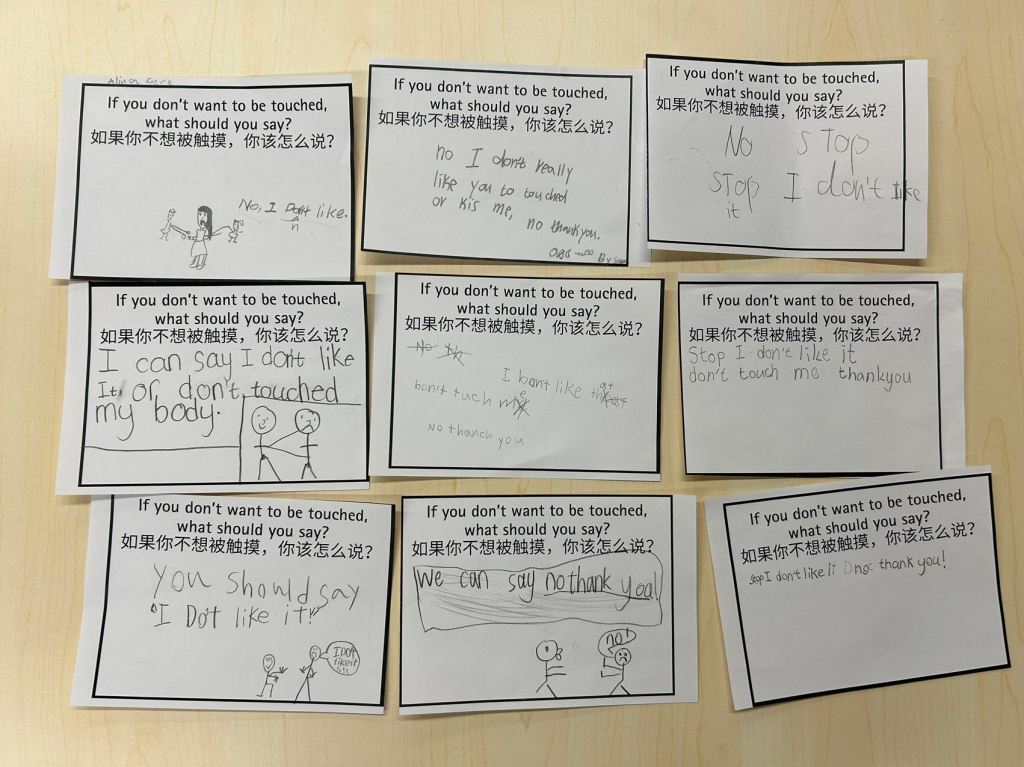 If you don't want to be touched,
what should you say?
如果你不想被触摸，你该怎么说？
No, I Don't like.
n
If you don't want to be touched,
what should you say?
如果你不想被触摸，你该怎么说？
no I don't really
like you to touched
or kis me, no thankyou.
By
If you don't want to be touched,
what should you say?
如果你不想被触摸，你该怎么说？
No STOP
STOP I don't like
it
If you don't want to be touched,
what should you say?
如果你不想被触摸，你该怎么说？
I can say I don't like
It, or don't touched
my body.
If you don't want to be touched,
what should you say?
如果你不想被触摸，你该怎么说？
No
I bont like that
bon't tuch me
No thanch you
If you don't want to be touched,
what should you say?
如果你不想被触摸，你该怎么说？
Stop I don't like it
don't touch me thankyou
If you don't want to be touched,
what should you say?
如果你不想被触摸，你该怎么说？
you should say
"I Do't like it!"
I Do't
like it
If you don't want to be touched,
what should you say?
如果你不想被触摸，你该怎么说？
We can say no thank you!
no!
If you don't want to be touched,
what should you say?
如果你不想被触摸，你该怎么说？
stop I don't like it no thank you!